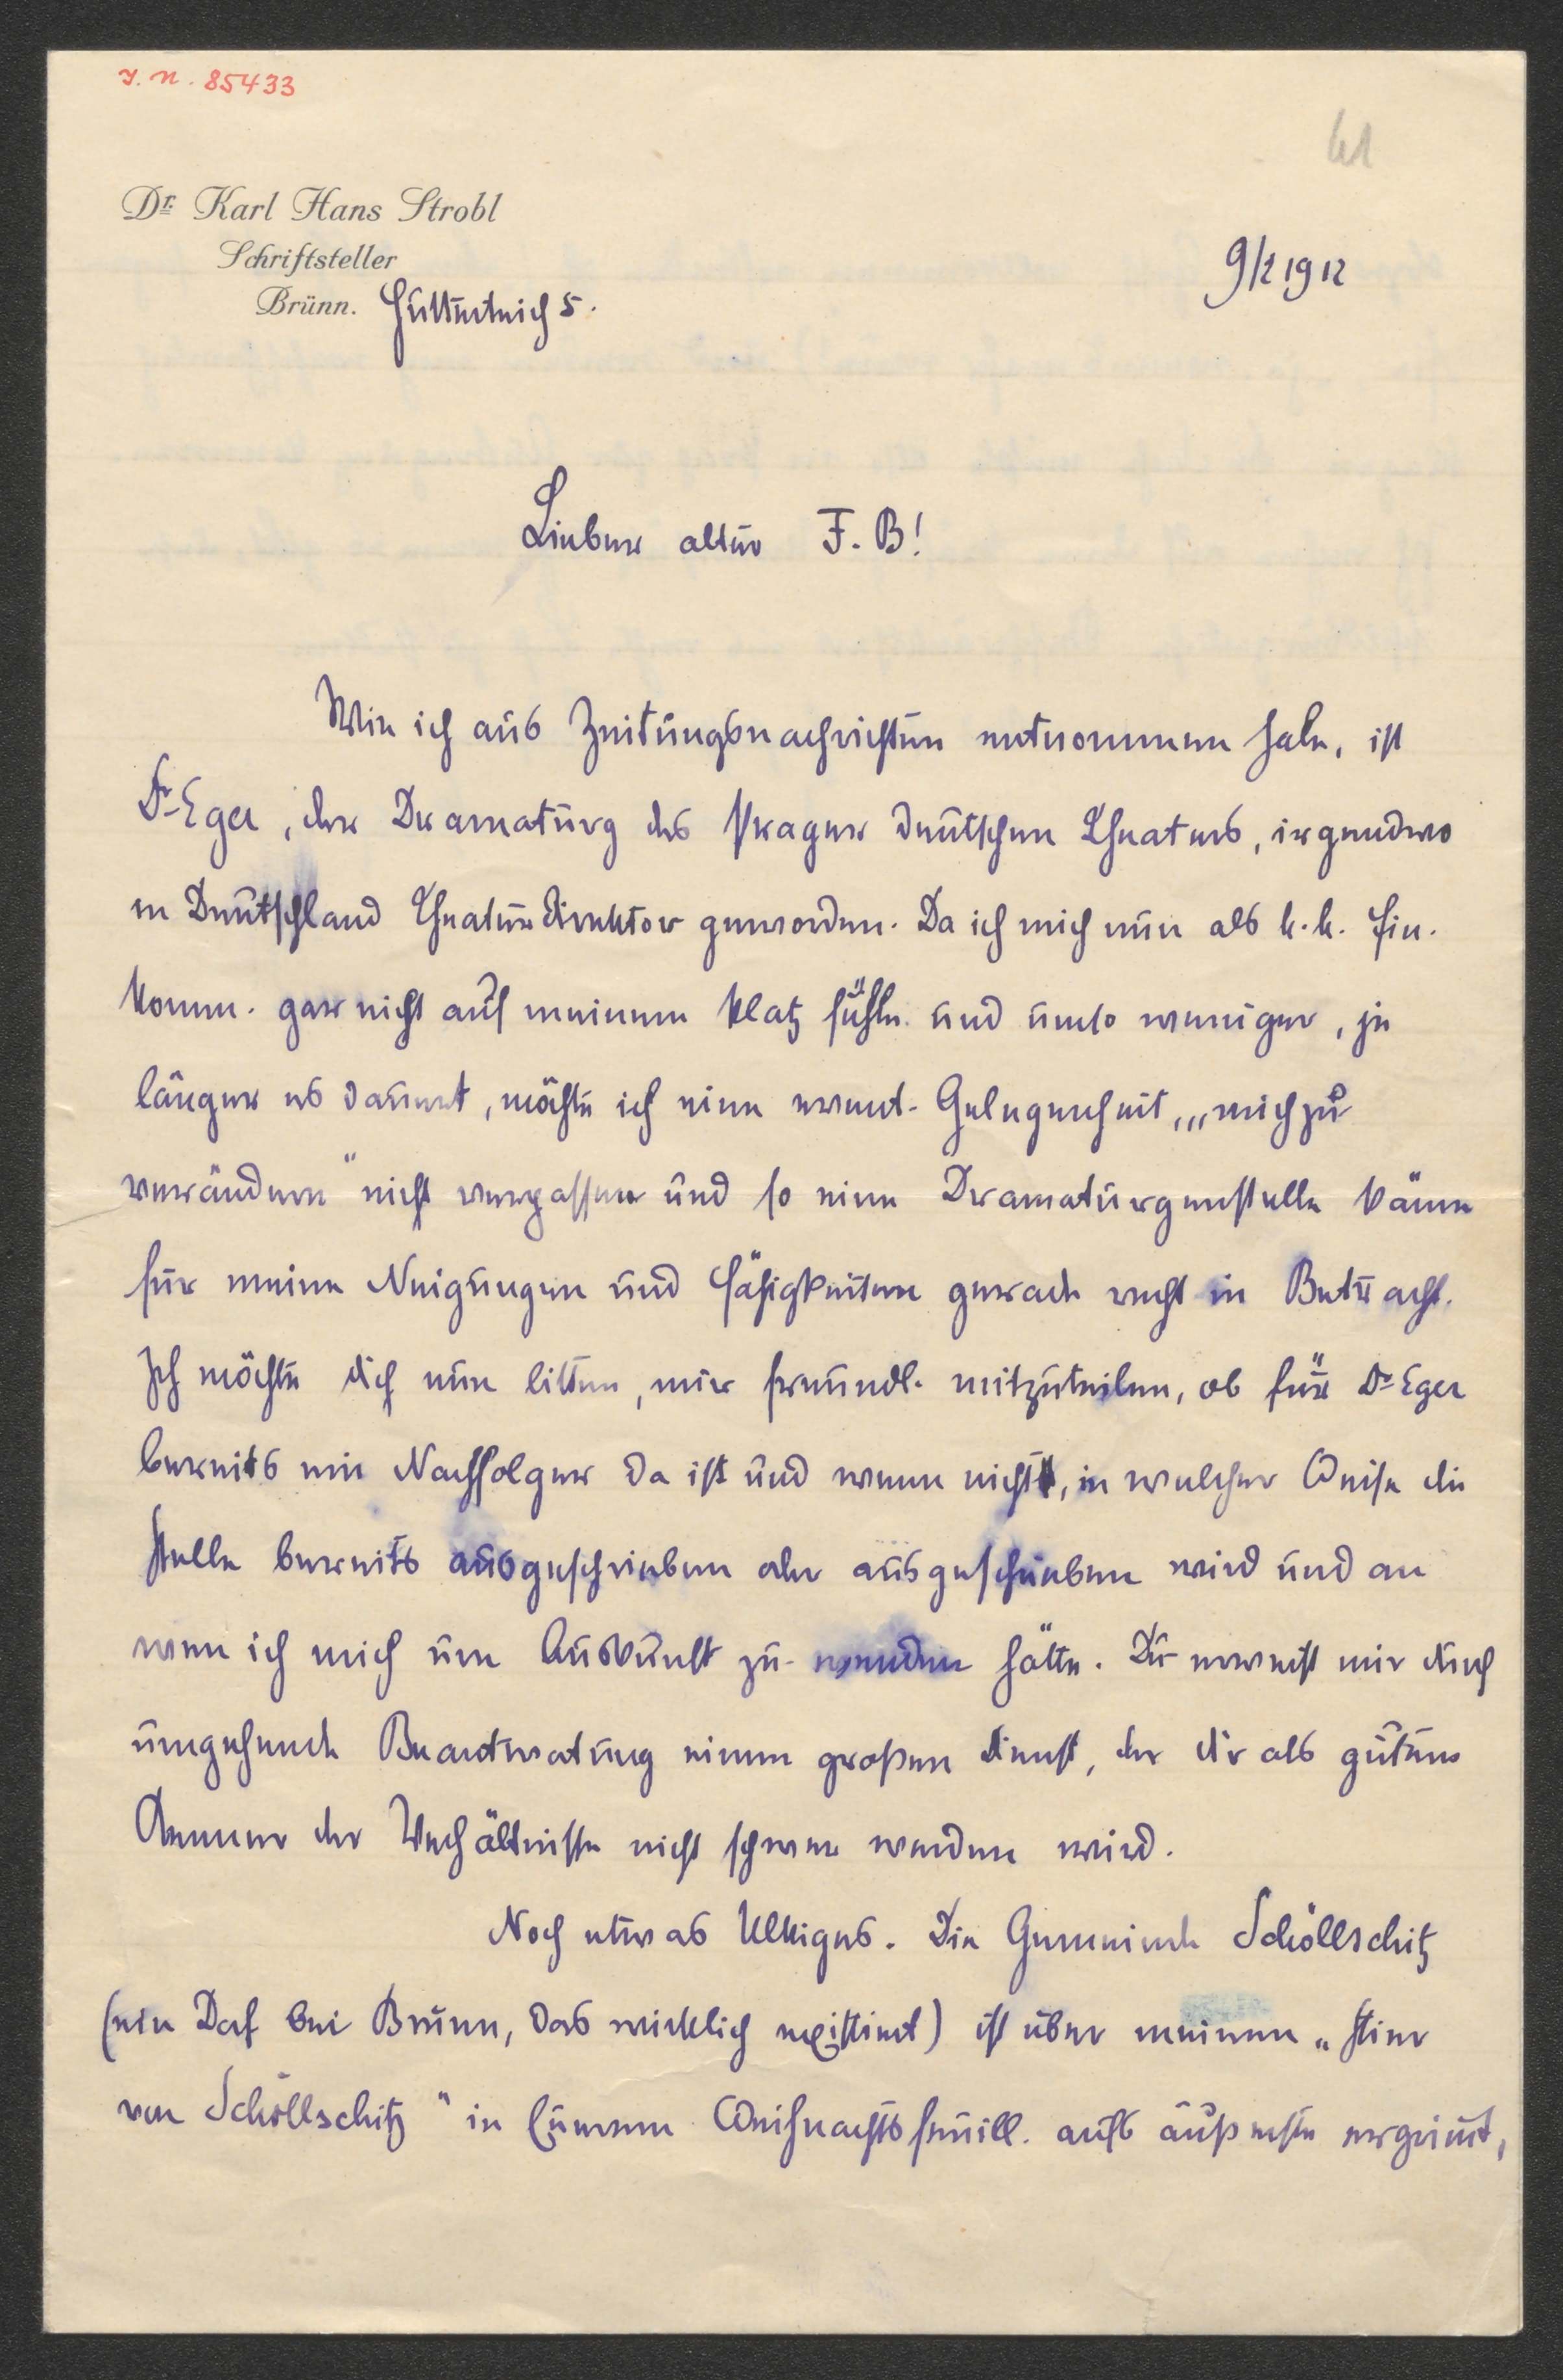 J. N. 85433
61
Dr. Karl Hans Strobl
Schriftsteller
Brünn. Hutterteich 5.
9/2 1912
Lieber alter F. B!
Wie ich aus Zeitungsnachrichten entnommen habe, ist
Dr Eger, der Dramaturg des Prager deutschen Theaters, irgendwo
in Deutschland Theaterdirektor geworden. Da ich mich nun als k. k. Fin.
komm. gar nicht auf meinem Platz fühle und umso weniger, je
länger es dauert, möchte ich eine event. Gelegenheit, „mich zu
verändern" nicht verpassen und so eine Dramaturgenstelle käme
für meine Neigungen und Fähigkeiten gerade recht in Betracht.
Ich möchte dich nun bitten, mir freundl. mitzuteilen, ob für Dr Eger
bereits ein Nachfolger da ist und wenn nicht, in welcher Weise die
Stelle bereits ausgeschrieben oder ausgeschrieben wird und an
wen ich mich um Auskunft zu wenden hätte. Du erweist mir durch
umgehende Beantwortung einen großen Dienst, der dir als gutem
Kenner der Verhältnisse nicht schwer werden wird.
Noch etwas Ulkiges. Die Gemeinde Schöllschitz
(ein Dorf bei Brünn, das wirklich existiert) ist über meinen „Stier
von Schöllschitz" in Eurem Weihnachtsfeuill. aufs äußerste ergrimmt,